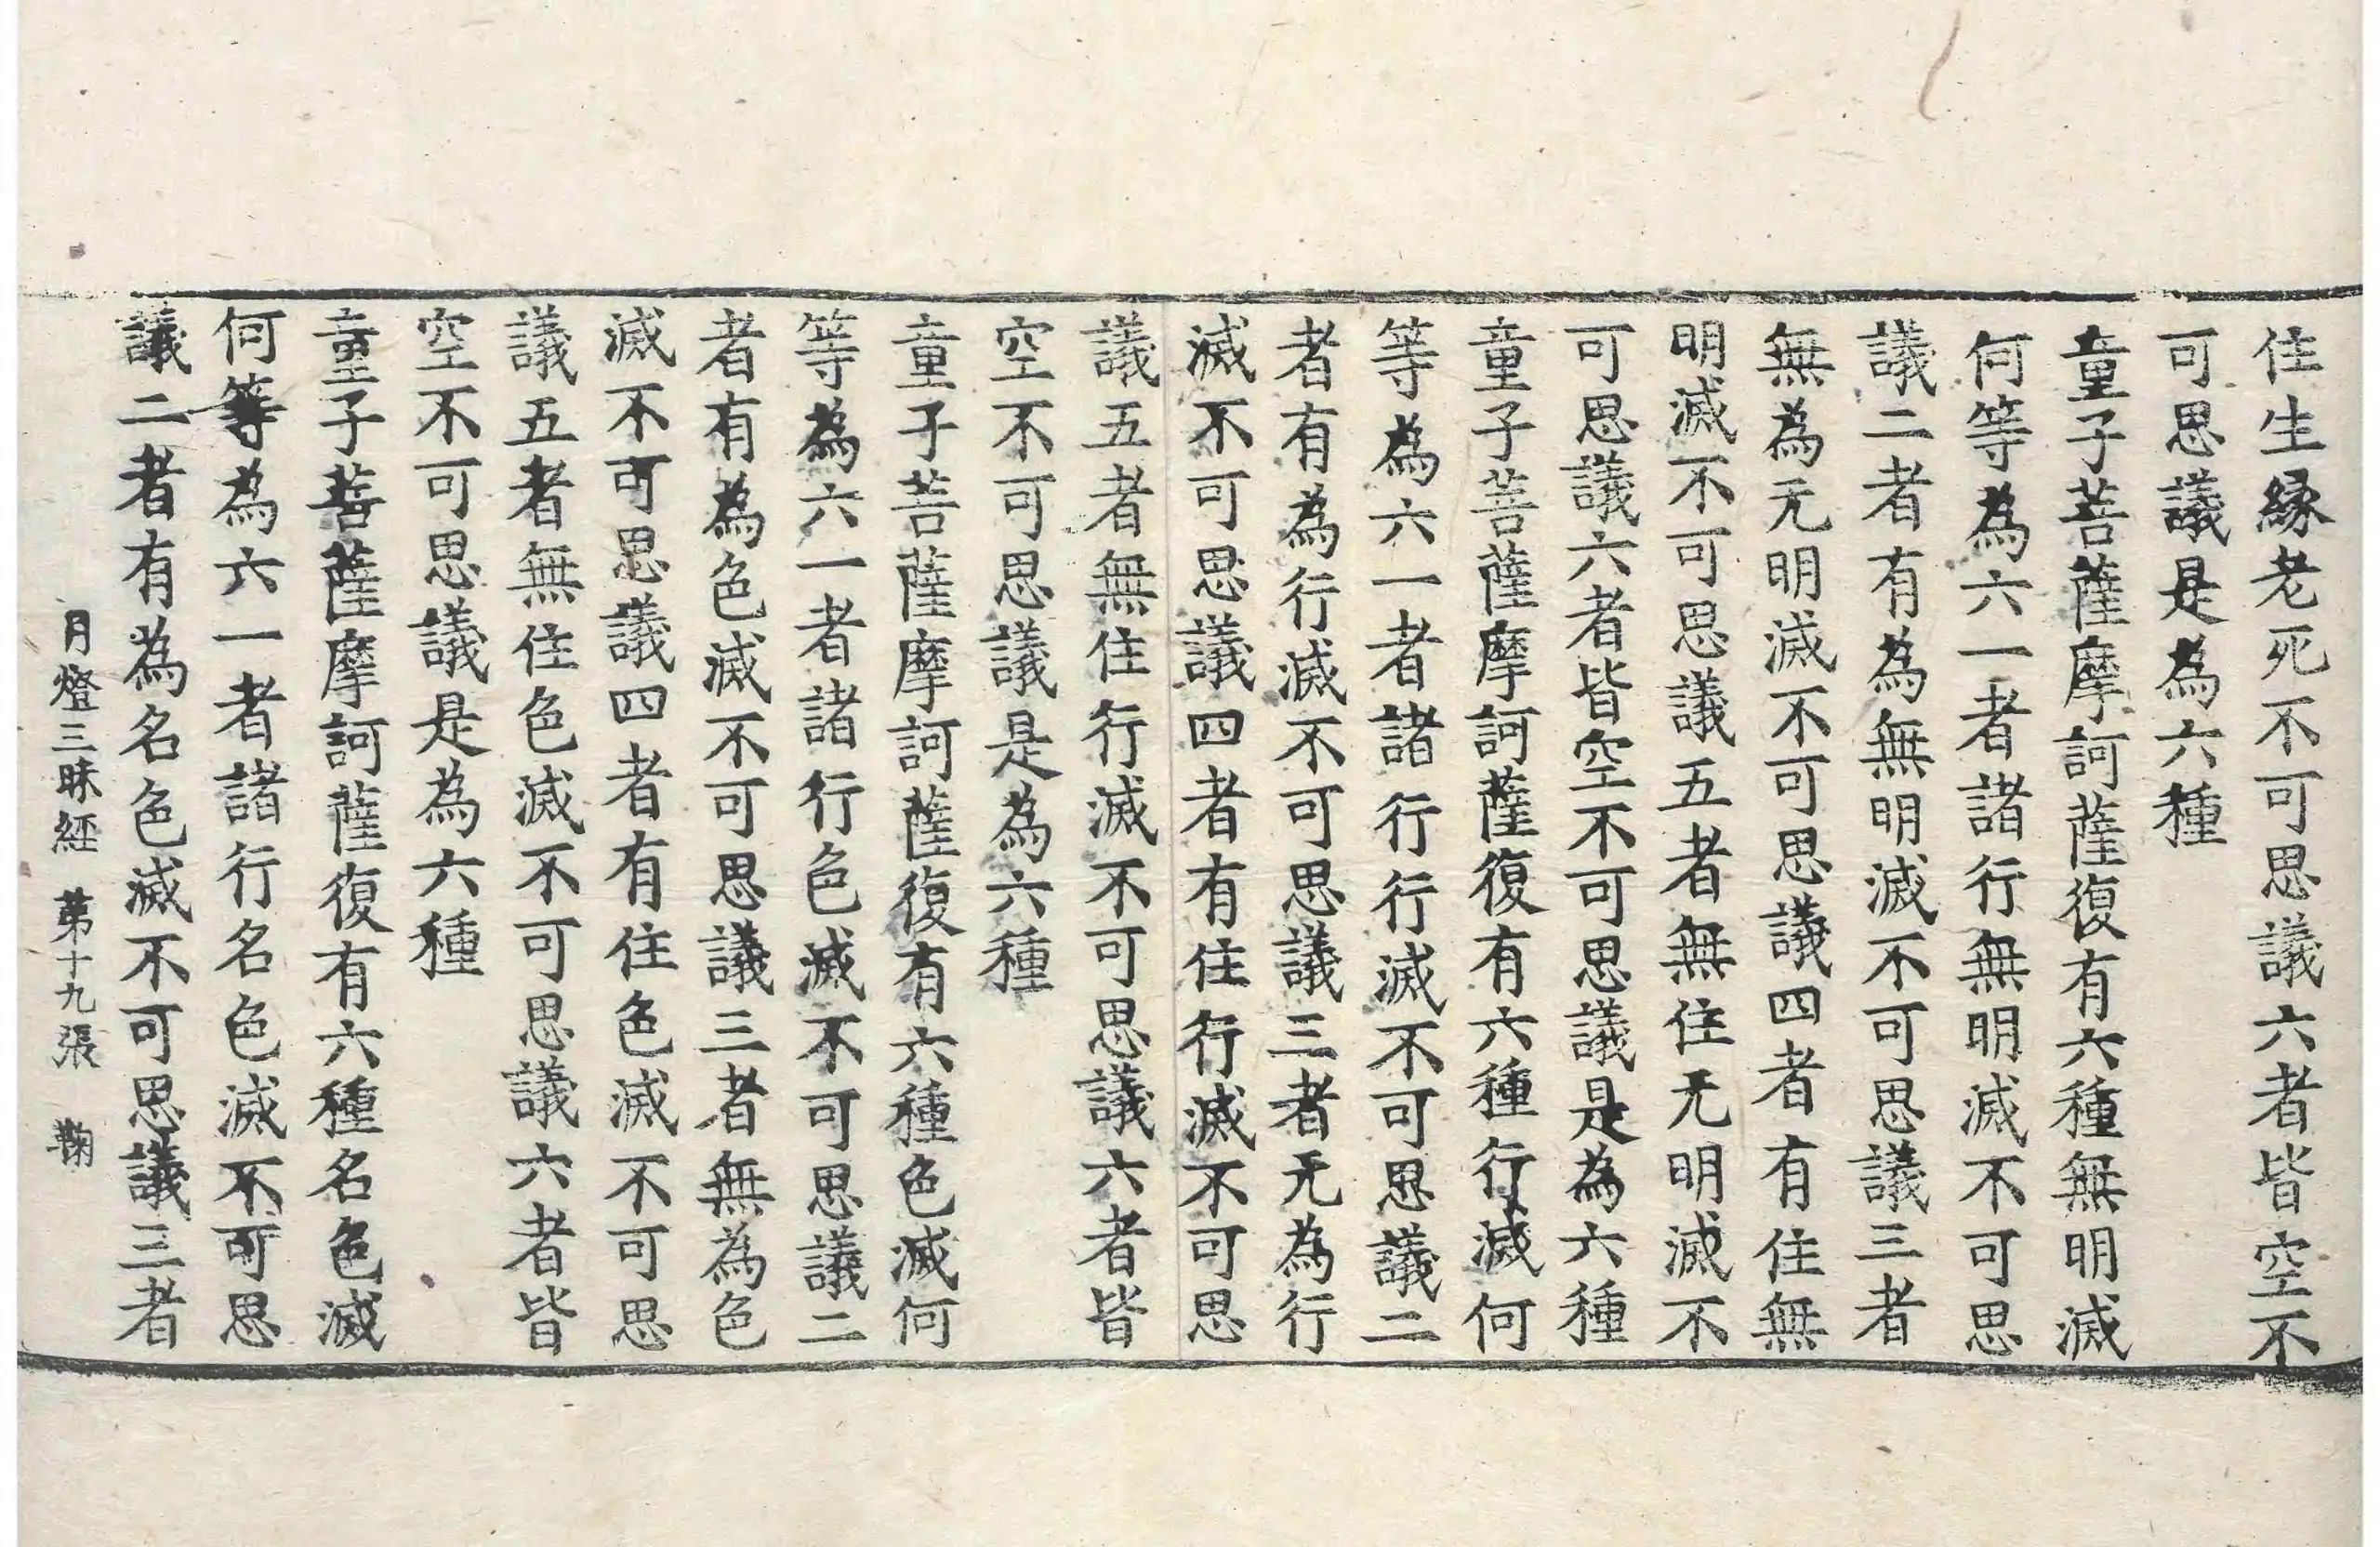 住生緣老死不可思議六者皆空不
可思議是為六種
童子菩薩摩訶薩復有六種無明滅
何等為六一者諸行無明滅不可思
議二者有為無明滅不可思議三者
無為无明滅不可思議四者有住無
明滅不可思議五者無住无明滅不
可思議六者皆空不可思議是為六種
童子菩薩摩訶薩復有六種行滅何
等為六一者諸行行滅不可思議二
者有為行滅不可思議三者无為行
滅不可思議四者有住行滅不可思
議五者無住行滅不可思議六者皆
空不可思議是為六種
童子菩薩摩訶薩復有六種色滅何
等為六一者諸行色滅不可思議二
者有為色滅不可思議三者無為色
滅不可思議四者有住色滅不可思
議五者無住色滅不可思議六者皆
空不可思議是為六種
童子菩薩摩訶薩復有六種名色滅
何等為六一者諸行名色滅不可思
議二者有為名色滅不可思議三者
月燈三昧經 第十九張 鞠